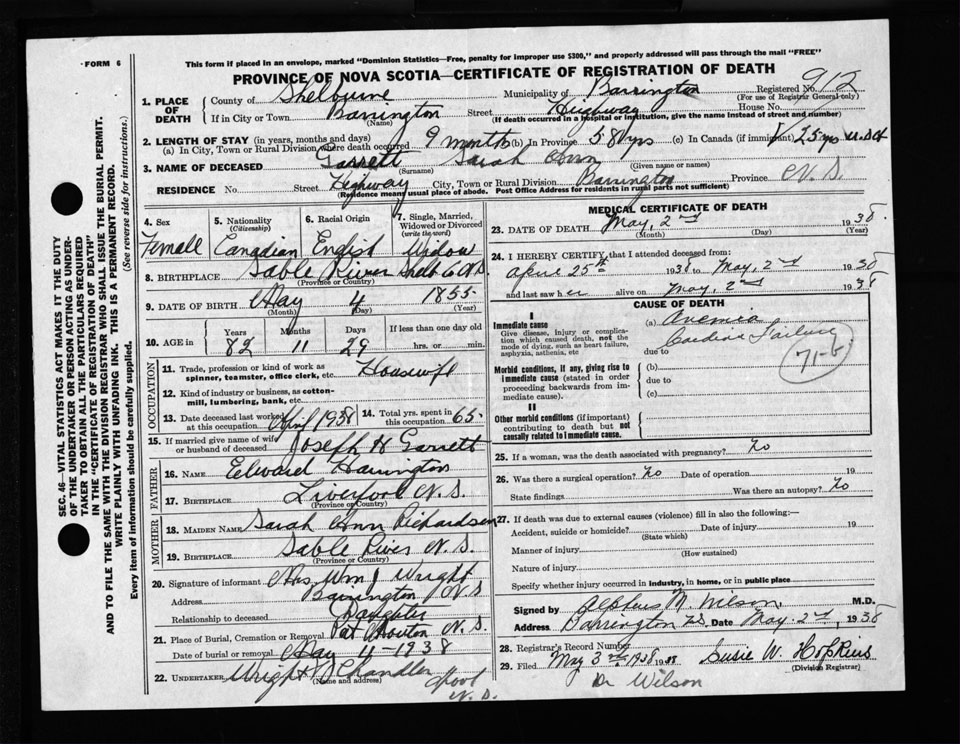 FORM 6
This form if placed in an envelope, marked "Dominion Statistics—Free, penalty for improper use $300," and properly addressed will pass through the mail "FREE"
PROVINCE OF NOVA SCOTIA—CERTIFICATE OF REGISTRATION OF DEATH
Registered No. 912
(For use of Registrar General only)
1. PLACE OF DEATH County of Shelburne Municipality of Barrington
If in City or Town Barrington Street Highway House No.
(Name) (If death occurred in a hospital or institution, give the name instead of street and number)
2. LENGTH OF STAY (in years, months and days)
(a) In City, Town or Rural Division where death occurred 9 months (b) In Province 58 yrs (c) In Canada (if immigrant) 25 yrs
3. NAME OF DECEASED Garrett Sarah Ann
(Surname) (Given name or names)
RESIDENCE No. Street Highway City, Town or Rural Division Barrington Province N.S.
(Residence means usual place of abode. Post Office Address for residents in rural parts not sufficient)
4. Sex Female
5. Nationality (Citizenship) Canadian
6. Racial Origin English
7. Single, Married, Widowed or Divorced (write the word) Widow
8. BIRTHPLACE Sable River Shelb Co N.S.
(Province or Country)
9. DATE OF BIRTH May 4 1855
(Month) (Day) (Year)
10. AGE in Years 82 Months 11 Days 29 If less than one day old hrs. or min.
OCCUPATION
11. Trade, profession or kind of work as spinner, teamster, office clerk, etc. Housewife
12. Kind of industry or business, as cotton-mill, lumbering, bank, etc.
13. Date deceased last worked at this occupation April 1938 14. Total yrs. spent in this occupation 65
15. If married give name of wife or husband of deceased Joseph H Garrett
FATHER
16. NAME Edward Harrington
17. BIRTHPLACE Liverpool N.S.
(Province or Country)
MOTHER
18. MAIDEN NAME Sarah Ann Richardson
19. BIRTHPLACE Sable River N.S.
(Province or Country)
20. Signature of informant Mrs Wm J Wright
Address Barrington N.S
Relationship to deceased Daughter
21. Place of Burial, Cremation or Removal N.S.
Date of burial or removal May 4-1938
22. UNDERTAKER Wright Chandler
(Name and address)
N.S.
MEDICAL CERTIFICATE OF DEATH
23. DATE OF DEATH May, 2nd 1938
(Month) (Day) (Year)
24. I HEREBY CERTIFY, that I attended deceased from:
April 25th 1938 to May, 2nd 1938
and last saw her alive on May, 2nd 1938
CAUSE OF DEATH
I
Immediate cause (a) Anemia
Cardiac Failure
Give disease, injury or complication which caused death, not the mode of dying, such as heart failure, asphyxia, asthenia, etc
due to
71-b
Morbid conditions, if any, giving rise to immediate cause (stated in order proceeding backwards from immediate cause).
(b)
due to
(c)
II
Other morbid conditions (if important) contributing to death but not causally related to immediate cause.
25. If a woman, was the death associated with pregnancy? No
26. Was there a surgical operation? No Date of operation 19
State findings Was there an autopsy? No
27. If death was due to external causes (violence) fill in also the following:—
Accident, suicide or homicide? Date of injury 19
(State which)
Manner of injury
(How sustained)
Nature of injury
Specify whether injury occurred in industry, in home, or in public place
Signed by Alpheus M. Wilson, M.D.
Address Barrington N.S. Date May. 2nd, 1938
28. Registrar's Record Number
29. Filed May 3rd 1938 1938 Susie W. Hopkins
(Division Registrar)
Dr Wilson
SEC. 46—VITAL STATISTICS ACT MAKES IT THE DUTY
OF THE UNDERTAKER OR PERSON ACTING AS UNDER-
TAKER TO OBTAIN ALL THE PARTICULARS REQUIRED
IN THE "CERTIFICATE OF REGISTRATION OF DEATH"
AND TO FILE THE SAME WITH THE DIVISION REGISTRAR WHO SHALL ISSUE THE BURIAL PERMIT.
WRITE PLAINLY WITH UNFADING INK. THIS IS A PERMANENT RECORD.
Every item of information should be carefully supplied. (See reverse side for instructions.)